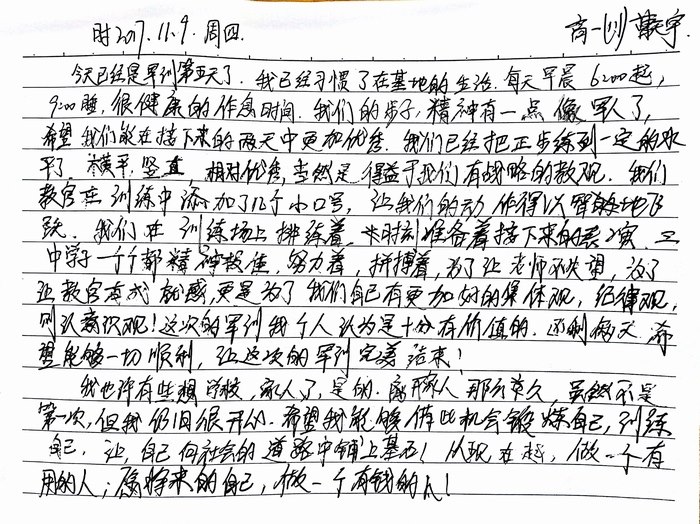 时2017.11.9.周四. 高一(11)
今天已经是军训第五天了. 我已经习惯了在基地的生活. 每天早晨6:00起,
9:00睡, 很健康的作息时间. 我们的步子, 精神有一点像军人了,
希望我们能在接下来的两天中更加优秀. 我们已经把正步练到一定的水
平了. 横平, 竖直 相对优秀, 当然是得益于我们有战略的教观. 我们
教官在训练中添加了几个小口号, 让我们的动作得以冒的地飞
跃. 我们在训练场上排练着, 时刻准备着接下来的表演. 三
中学子一个个都精神较佳, 努力着, 拼搏着, 为了让老师不失望, 为了
让教官有成就感, 更是为了我们自己有更加好的集体观, 纪律观,
则认意识观! 这次的军训我个人认为是十分有价值的. 还剩做天 希
望能够一切顺利, 让这次的军训完美结束!
我也许有些想学校, 家人了, 是的. 离开家人那么久, 虽然不是
第一次, 但我仍旧很开心. 希望我能够借此机会锻炼自己, 训练
自己, 让自己向社会的道路中铺上基石! 从现在起, 做一个有
用的人; 为将来的自己, 做一个有钱的人!